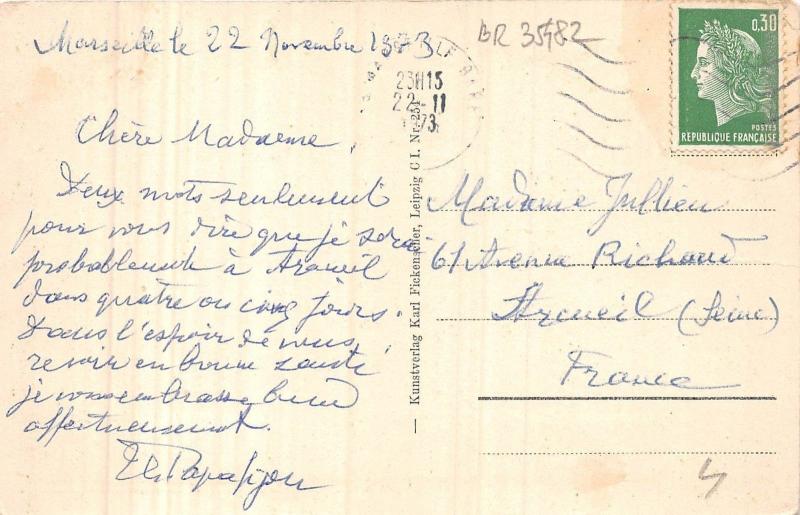 Marseille le 22 Novembre 1973
BR 35482
0,30
POSTES
REPUBLIQUE FRANÇAISE
23H15
22-11
1973
Chère Madame,
Deux mots seulement
pour vous dire que je serai
probablement à Arcueil
dans quatre ou cinq jours.
Dans l'espoir de vous
revoir en bonne santé
je vous embrasse bien
affectueusement.
Kunstverlag Karl Fickenscher, Leipzig C I. Nr. 251
Madame Jullien
61 Avenue Richaud
Arcueil (Seine)
France